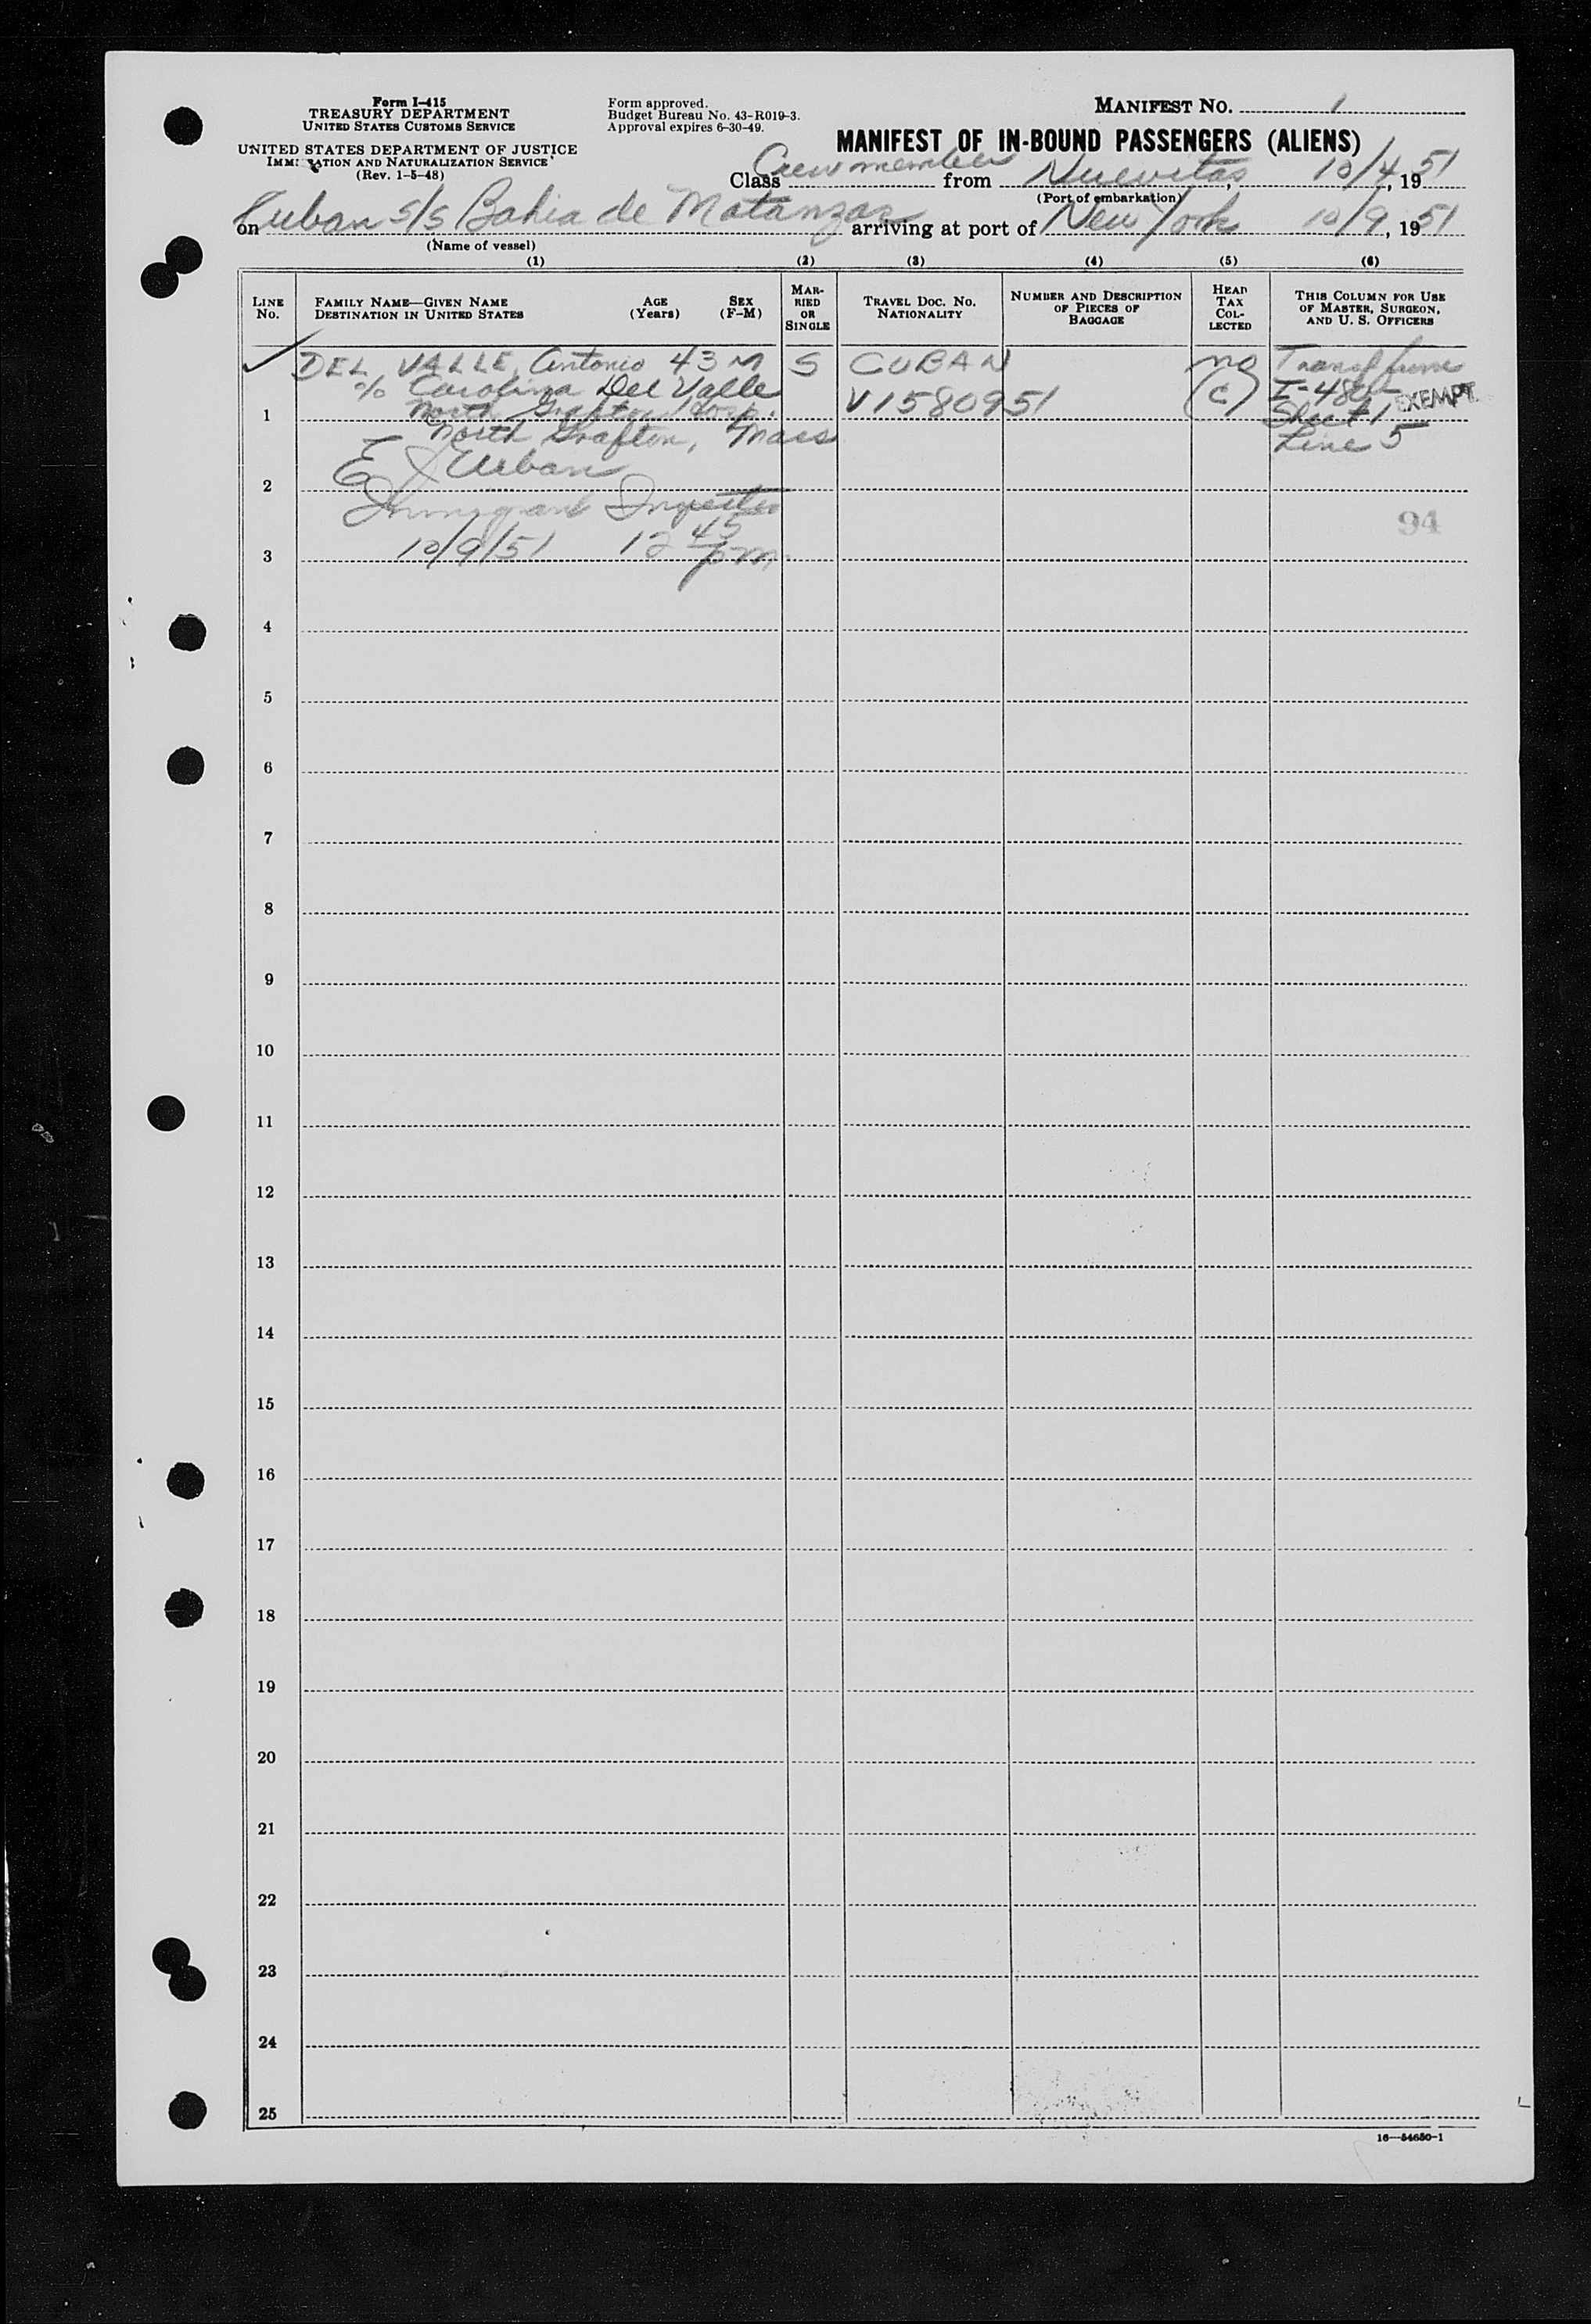 Form I-415
TREASURY DEPARTMENT
UNITED STATES CUSTOMS SERVICE
UNITED STATES DEPARTMENT OF JUSTICE
IMMI ATION AND NATURALIZATION SERVICE
(Rev. 1-5-48)
Form approved.
Budget Bureau No. 43-R019-3.
Approval expires 6-30-49.
MANIFEST NO. 1
MANIFEST OF IN-BOUND PASSENGERS (ALIENS)
Class Crewmember from Nuevitas, 10/4, 1951
(Port of embarkation)
on Cuban S/S Bahia de Matanzas arriving at port of New York 10/9, 1951
(Name of vessel)
(1) (2) (3) (4) (5) (6)
LINE No.
FAMILY NAME—GIVEN NAME
DESTINATION IN UNITED STATES
AGE (Years)
SEX (F-M)
MARRIED OR SINGLE
TRAVEL DOC. NO.
NATIONALITY
NUMBER AND DESCRIPTION
OF PIECES OF
BAGGAGE
HEAD
TAX
COL-
LECTED
THIS COLUMN FOR USE
OF MASTER, SURGEON,
AND U. S. OFFICERS
DEL VALLE, Antonio 43 M S CUBAN no
c/o Carolina Del Valle V1580951 (C) I-480 EXEMPT
1 North Grafton Hosp. Sheet 1
North Grafton, Mass Line 5
E J Urban
2
Immigrant Inspector
94
10/9/51 12 45 pm
3
4
5
6
7
8
9
10
11
12
13
14
15
16
17
18
19
20
21
22
23
24
25
16—54650-1